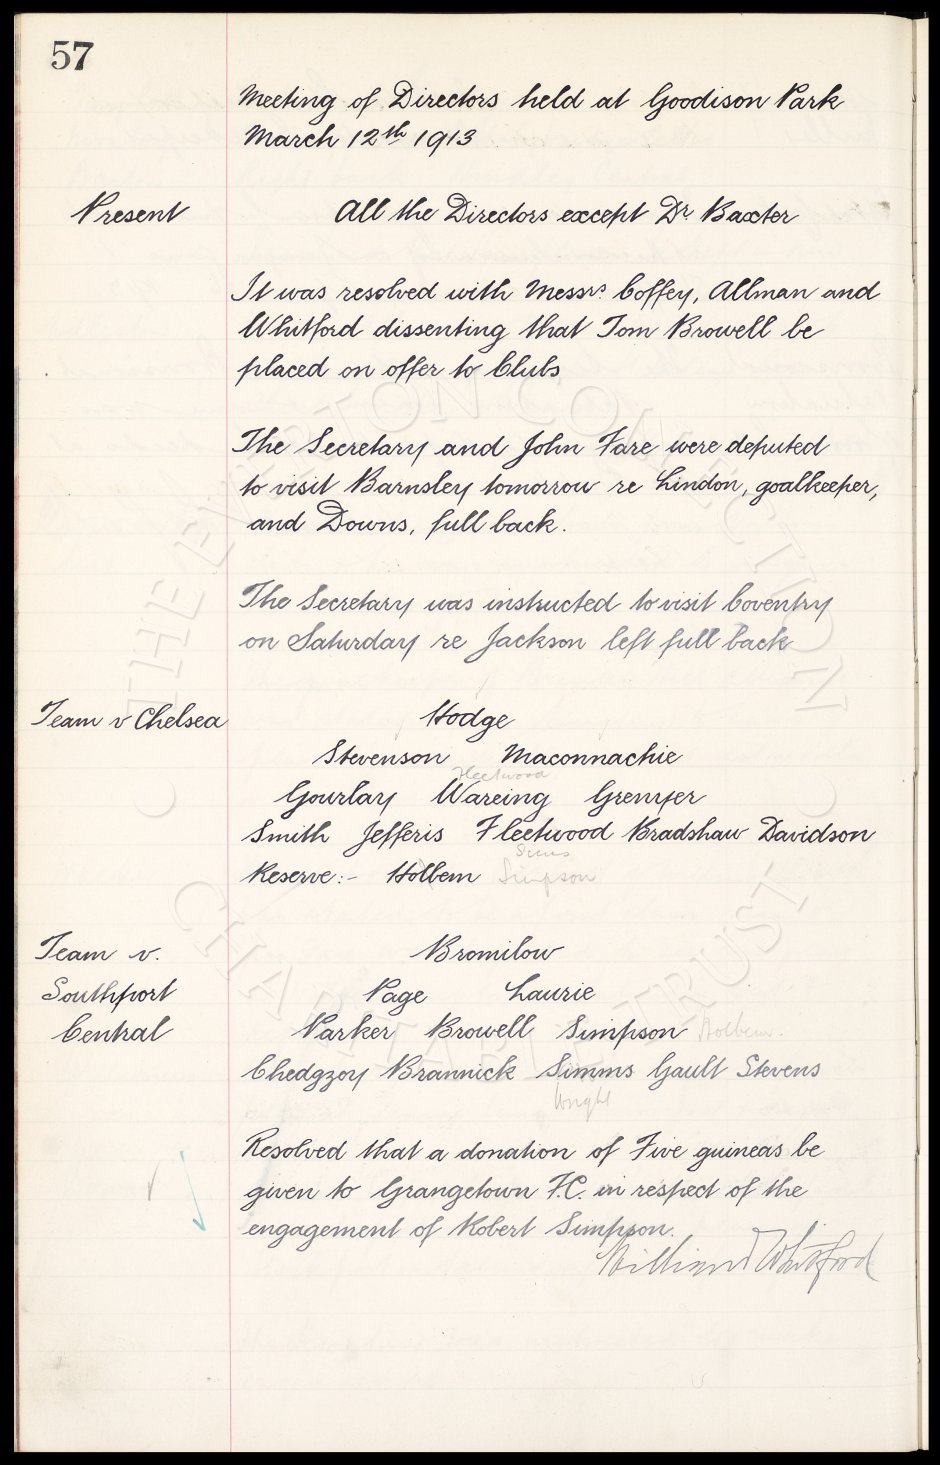 57
Meeting of Directors held at Goodison Park
March 12th 1913
Present
All the Directors except Dr. Baxter
It was resolved with Messrs. Coffey, Allman and
Whitford dissenting that Tom Browell be
placed on offer to Clubs
The Secretary and John Fare were deputed
to visit Barnsley tomorrow re Lindon, goalkeeper,
and Downs, full back.
The Secretary was instructed to visit Coventry
on Saturday re Jackson left full back
Team v Chelsea
Hodge
Stevenson Maconnachie
Fleetwood
Gourlay Wareing Grenyer
Smith Jefferis Fleetwood Bradshaw Davidson
Reserve:- Holbem Simpson
Team v.
Southport
Central
Bromilow
Page Laurie
Parker Browell Simpson Holbem.
Chedgzoy Brannick Simms Gault Stevens
Wright
Resolved that a donation of Five guineas be
given to Grangetown F.C. in respect of the
engagement of Robert Simpson.
William Whitford
THE EVERTON COLLECTION
CHARITABLE TRUST